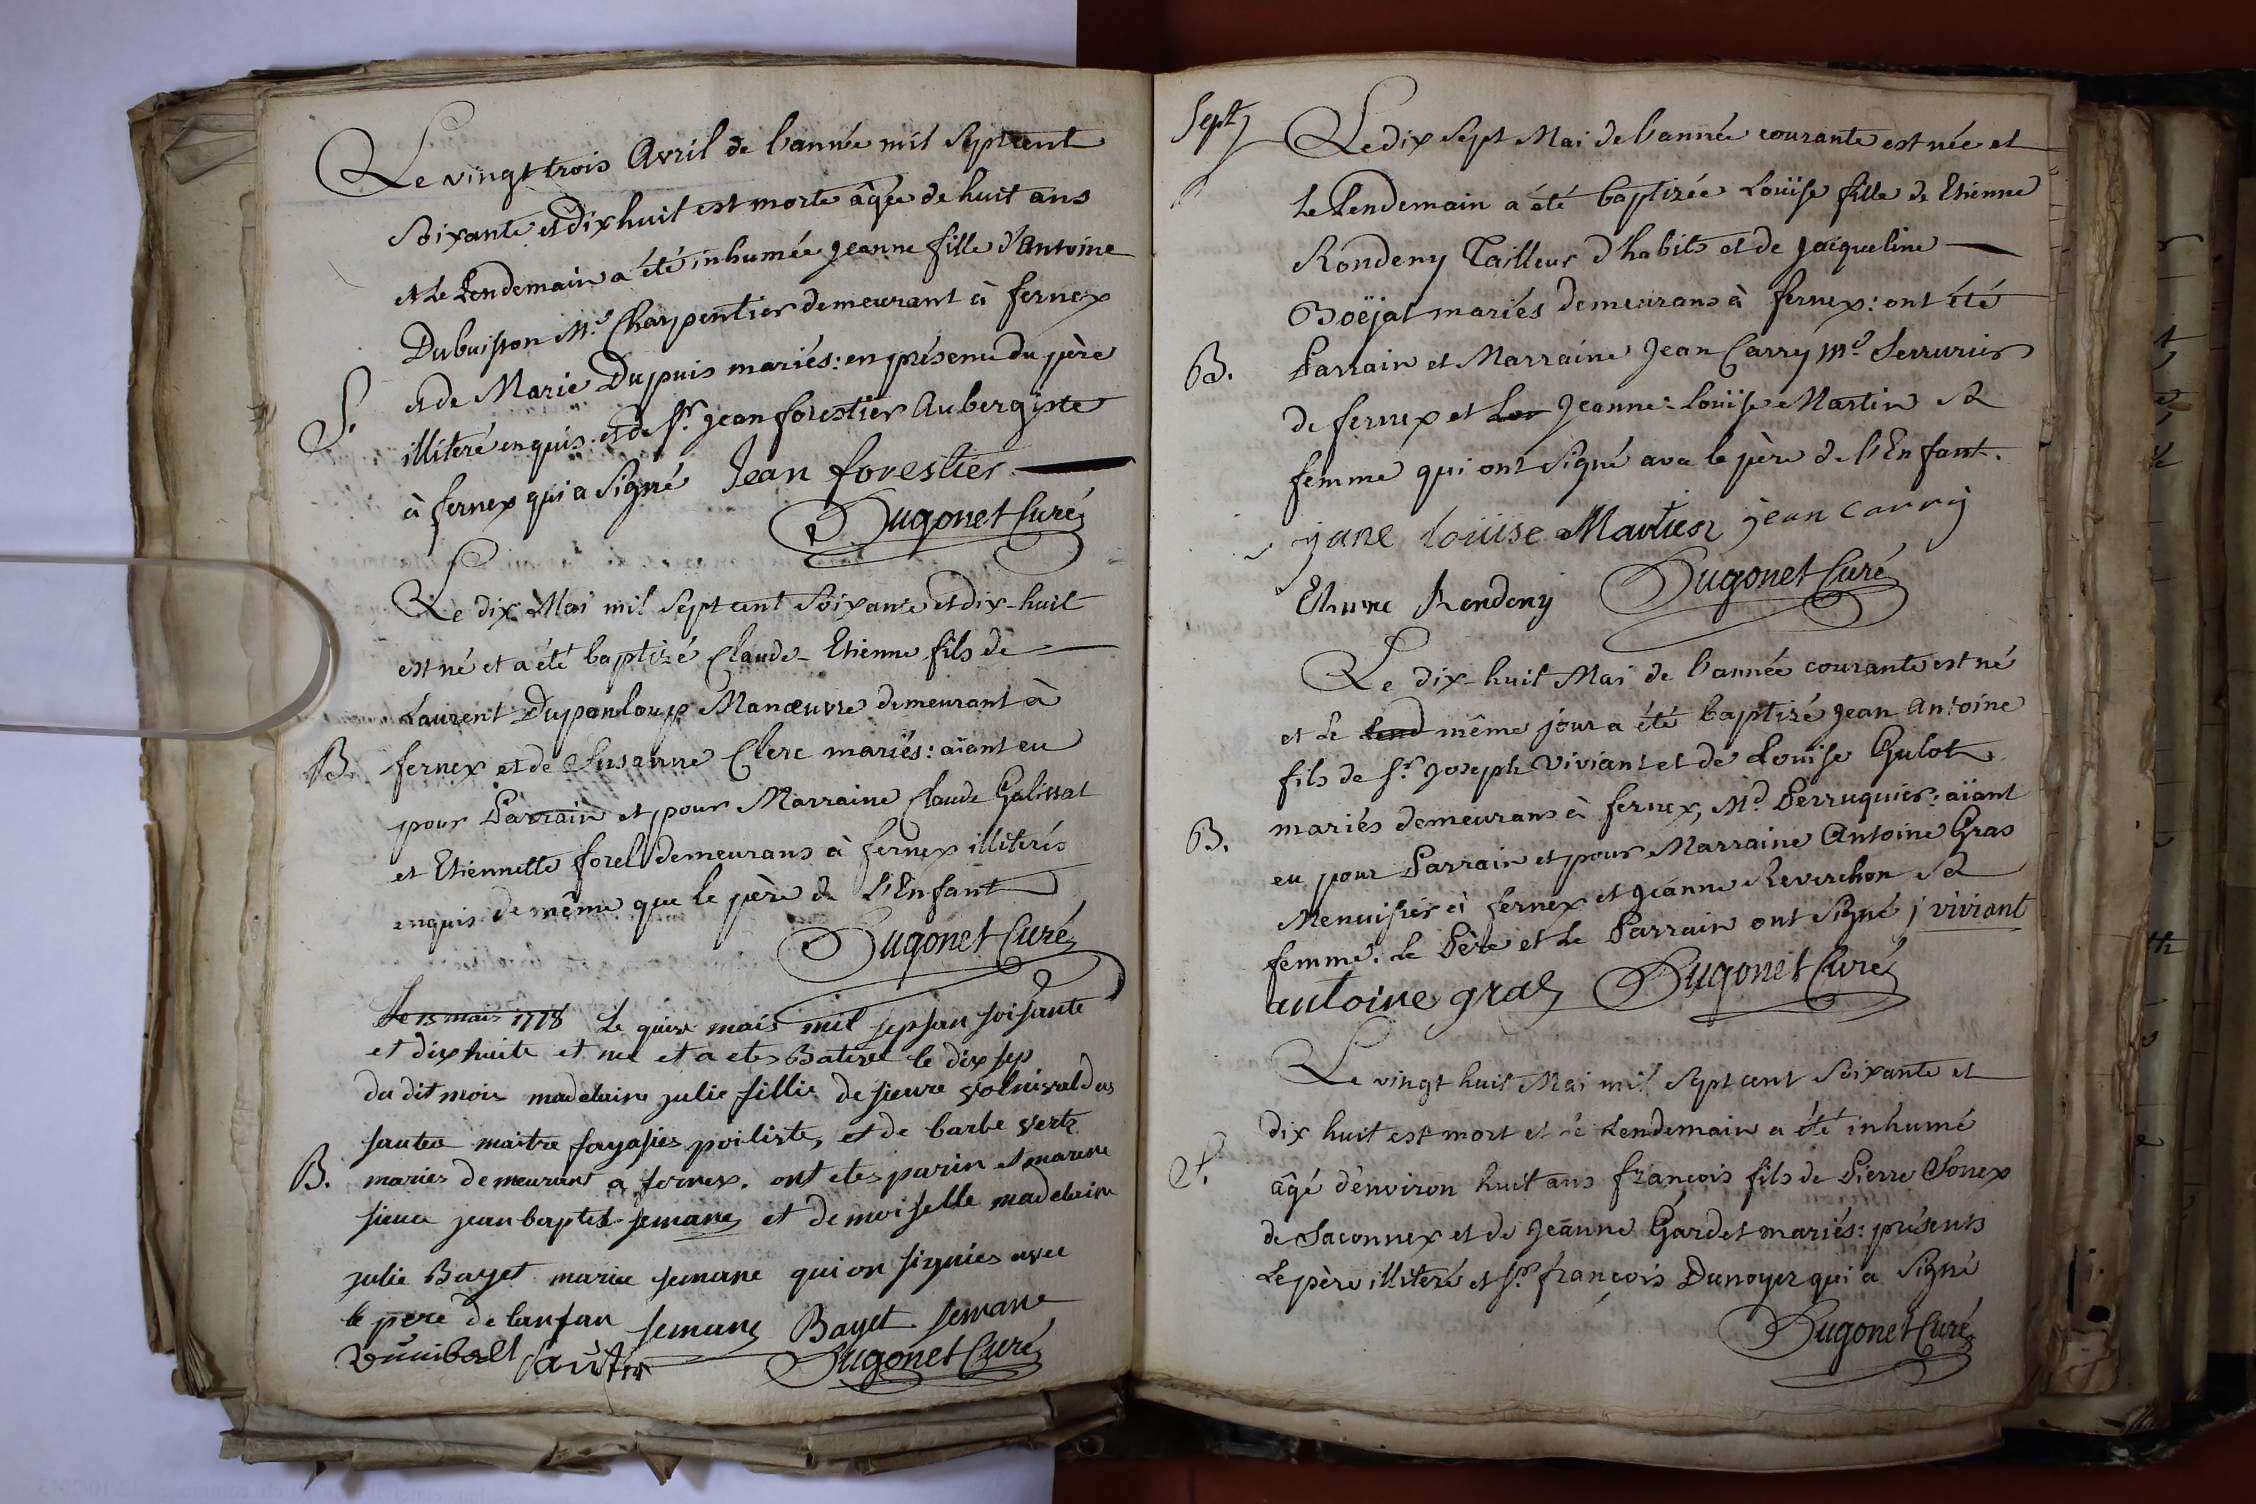 Le vingt trois Avril de l'année mil Septcent
Soixante et dix huit est morte âgée de huit ans
et le Lendemain a été inhumée Jeanne fille d'Antoine
Dubuisson Me. Charpentier demeurant à fernex
et de Marie Dupuis mariés: en présence du père
S. illiteré enquis: et de Sr. Jean forestier Aubergiste
à fernex qui a Signé Jean forestier
Hugonet Curé
Le dix Mai mil Sept cent Soixante et dix-huit
est né et a été baptizé Claude-Etienne fils de
Laurent Dupanloup Manœuvre demeurant à
B. fernex et de Susanne Clerc mariés: aïant eu
pour Parrain et pour Marraine Claude Galissat
et Etiennette forel demeurans à fernex illiterés
enquis de même que le père de l'Enfant
Hugonet Curé
Le 15 mais 1778 Le quinse mais mil sepsan soisante
et dixhuite et nee et a etes Batisee le dix sep
du dit mois madelaine julie fillie de sieure
sauter maitre fayasies poiliste, et de barbe verte
B. maries demeurant a fernex. ont etes parin et marene
sieur jean baptist semane et demoiselle madelaine
julie Bayet mariee semane qui on signies avec
le pere de lanfan semane Bayet semane
Sautter Hugonet Curé
Sept
Le dix Sept Mai de l'année courante est née et
le Lendemain a été baptizée Louïse fille de Etienne
Rondeny Tailleur d'habits et de Jacqueline
Boëjat mariés demeurans à fernex: ont été
B. Parrain et Marraine Jean Carry Me Serrurier
de fernex et Lou Jeanne-Louïse Martin sa
femme qui ont Signé avec le père de l'Enfant.
jane louïse Martin jean carry
Etienne Rondeny Hugonet Curé
Le dix-huit Mai de l'année courante est né
et le Lend même jour a été baptizé Jean Antoine
fils de Sr. Joseph Viviant et de Louise Gulot
mariés demeurans à fernex, Md. Perruquier: aïant
B. eu pour Parrain et pour Marraine Antoine Gras
Menuisier à fernex et Jeanne Reverchon sa
femme. Le Père et le Parrain ont signé j viviant
antoine gras Hugonet Curé
Le vingt huit Mai mil Sept cent Soixante et
dix huit est mort et le Lendemain a été inhumé
S. âgé d'environ huit ans françois fils de Pierre Sonex
de Saconnex et de Jeanne Gardet mariés: présents
le père illiteré et Sr. françois Dunoyer qui a Signé
Hugonet Curé